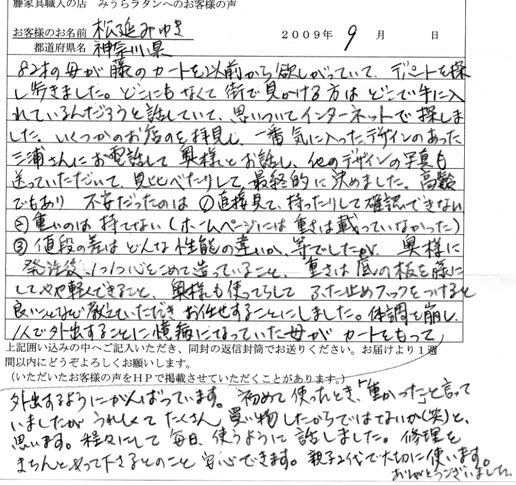 藤家具職人の店 みうらラタンへのお客様の声
お客様のお名前 松延みゆき
都道府県名 神奈川県 2009年 9月 日
82才の母が藤のカートを以前から欲しがっていて、デパートを探
し歩きました。どこにもなくて街で見かける方はどこで手に入
れているんだろうと話していて、思いついてインターネットで探しま
した。いくつかのお店のを拝見し、一番気に入ったデザインのあった
三浦さんにお電話して奥様とお話し、他のデザインの写真も
送っていただいて、見比べたりして最終的に決めました。高齢
でもあり 不安だったのは ①直接見て、持ったりして確認できない
②重いのは持てない(ホームページには重さは載っていなかった)
③値段の差はどんな性能の違いか、等でしたが、奥様に
発注後、1つ1つ心をこめて造っていること、重さは底の板を籐に
してやや軽くできること、奥様も使ってらして ふた止めフックをつけると
良いことなど教えていただき お任せすることにしました。体調を崩し、
1人で外出することに憶病になっていた母が カートをもって
上記囲い込みの中へご記入いただき、同封の返信封筒でお送りください。お届けより1週
間以内にどうぞよろしくお願いします。
(いただいたお客様の声をHPで掲載させていただくことがあります。)
外出するようにがんばっています。初めて使ったとき、「重かった」と言って
いましたが うれしくて たくさん 買い物したからではないか(笑)と、
思います。杖がわりにして毎日、使うように 話しました。修理を
きちんとやって下さるとのこと 安心できます。親子2代で大切に使います。
ありがとうございました。